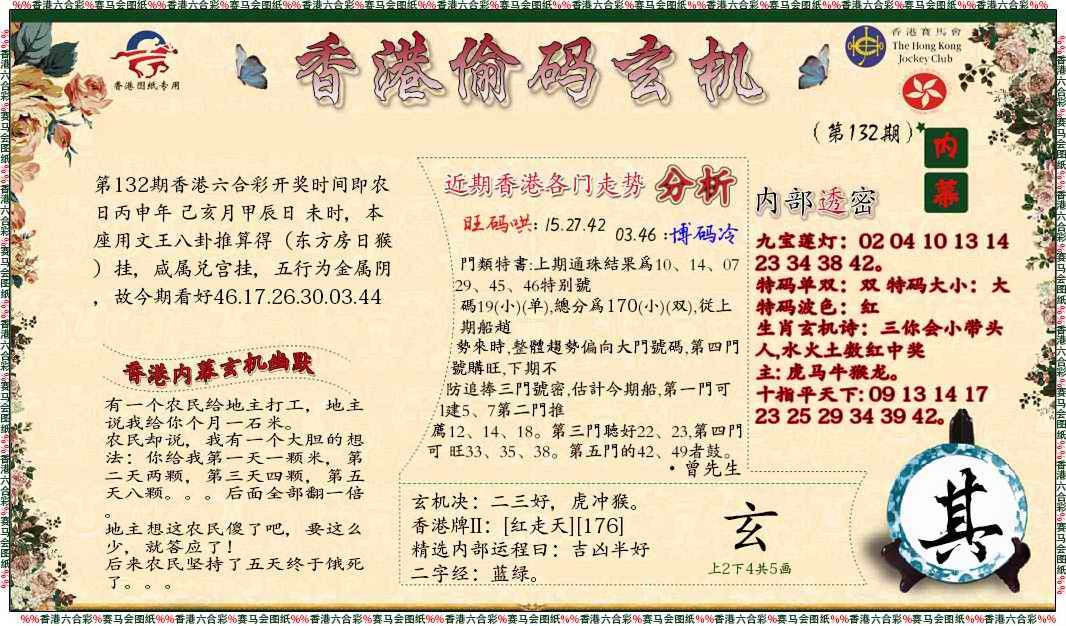 %%香港六合彩%赛马会图纸%%香港六合彩%赛马会图纸%%香港六合彩%赛马会图纸%%香港六合彩%赛马会图纸%%香港六合彩%赛马会图纸%%香港六合彩%赛马会图纸%%香港六合彩%赛马会图纸%%香港六合彩%%
香港图纸专用
香港偷码玄机
香港賽馬會
The Hong Kong
Jockey Club
（第132期）
内
幕
第132期香港六合彩开奖时间即农
日丙申年 己亥月甲辰日 未时，本
座用文王八卦推算得（东方房日猴
）挂，咸属兑宫挂，五行为金属阴
，故今期看好46.17.26.30.03.44
香港内幕玄机幽默
有一个农民给地主打工，地主
说我给你个月一石米。
农民却说，我有一个大胆的想
法：你给我第一天一颗米，第
二天两颗，第三天四颗，第五
天八颗。。。后面全部翻一倍
。
地主想这农民傻了吧，要这么
少，就答应了！
后来农民坚持了五天终于饿死
了。。。
近期香港各门走势 分析
旺码哄: 15.27.42
03.46 :博码冷
門類特書:上期通珠結果爲10、14、07
29、45、46特别號
碼19(小)(单),總分爲170(小)(双),從上
期船趟
勢來時,整體趨勢偏向大門號碼,第四門
號購旺,下期不
防追捧三門號密,估計今期船,第一門可
1建5、7第二門推
薦12、14、18。第三門聽好22、23,第四門
可 旺33、35、38。第五門的42、49者鼓。
• 曾先生
玄机决：二三好，虎冲猴。
香港牌II：[红走天][176]
精选内部运程曰：吉凶半好
二字经：蓝绿。
玄
上2下4共5画
内部透密
九宝莲灯：02 04 10 13 14
23 34 38 42。
特码单双：双 特码大小：大
特码波色：红
生肖玄机诗：三你会小带头
人,水火土数红中奖
主: 虎马牛猴龙。
十指平天下: 09 13 14 17
23 25 29 34 39 42。
其
%%香港六合彩%赛马会图纸%%香港六合彩%赛马会图纸%%香港六合彩%赛马会图纸%%香港六合彩%赛马会图纸%%香港六合彩%赛马会图纸%%香港六合彩%赛马会图纸%%香港六合彩%赛马会图纸%%香港六合彩%%